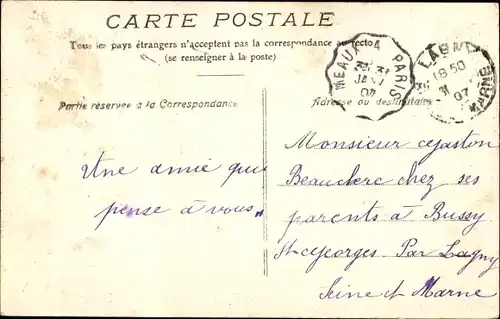 CARTE POSTALE
Tous les pays étrangers n'acceptent pas la correspondance au recto
(se renseigner à la poste)
MEAUX A PARIS
JAN
07
LAGNY
18 50
31
07
MARNE
Partie réservée à la Correspondance
Adresse du destinataire
Une amie qui
pense à vous
Monsieur Gaston
Beauclerc chez ses
parents à Bussy
St Georges Par Lagny
Seine et Marne